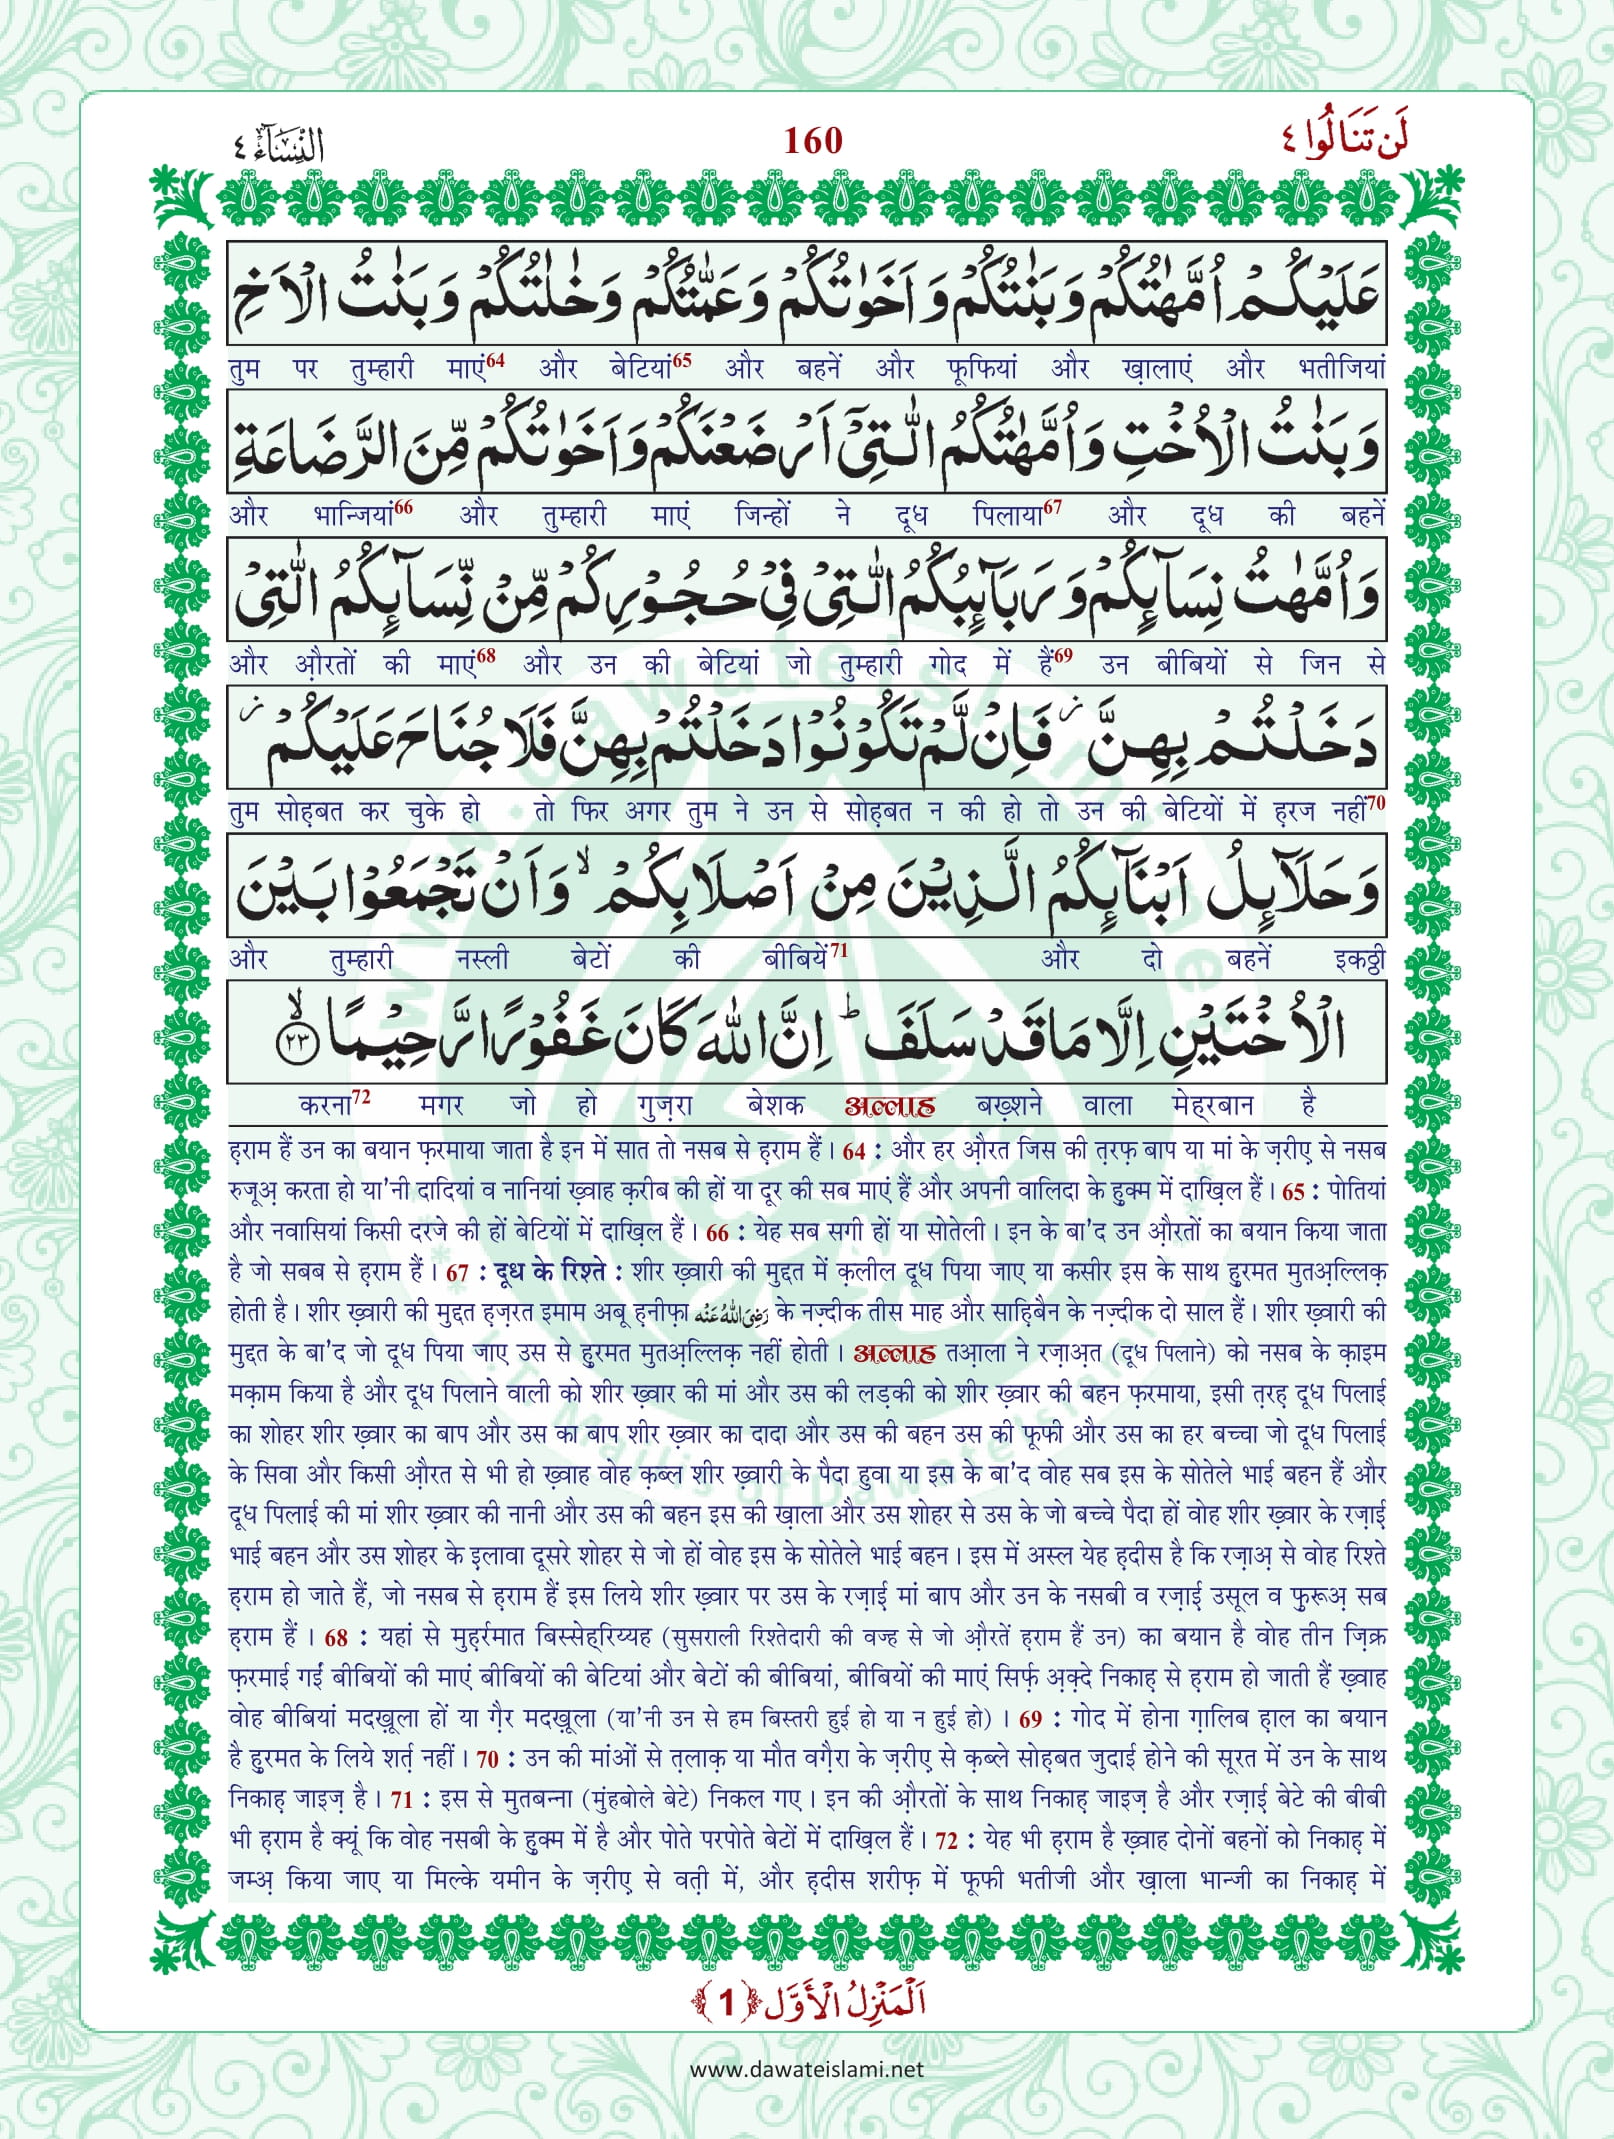 لَنْ تَنَالُوا ٤
160
النِّسَآء ٤
عَلَيْكُمْ اُمَّهٰتُكُمْ وَبَنٰتُكُمْ وَاَخَوٰتُكُمْ وَعَمّٰتُكُمْ وَخٰلٰتُكُمْ وَبَنٰتُ الْاَخِ
तुम पर तुम्हारी माएं64 और बेटियां65 और बहनें और फूफियां और ख़ालाएं और भतीजियां
وَبَنٰتُ الْاُخْتِ وَاُمَّهٰتُكُمُ الّٰتِيْٓ اَرْضَعْنَكُمْ وَاَخَوٰتُكُمْ مِّنَ الرَّضَاعَةِ
और भान्जियां66 और तुम्हारी माएं जिन्हों ने दूध पिलाया67 और दूध की बहनें
وَاُمَّهٰتُ نِسَآىِٕكُمْ وَرَبَآىِٕبُكُمُ الّٰتِيْ فِيْ حُجُوْرِكُمْ مِّنْ نِّسَآىِٕكُمُ الّٰتِيْ
और औ़रतों की माएं68 और उन की बेटियां जो तुम्हारी गोद में हैं69 उन बीबियों से जिन से
دَخَلْتُمْ بِهِنَّ ز فَاِنْ لَّمْ تَكُوْنُوْا دَخَلْتُمْ بِهِنَّ فَلَا جُنَاحَ عَلَيْكُمْ ز
तुम सोह़बत कर चुके हो तो फिर अगर तुम ने उन से सोह़बत न की हो तो उन की बेटियों में ह़रज नहीं70
وَحَلَآىِٕلُ اَبْنَآىِٕكُمُ الَّذِيْنَ مِنْ اَصْلَابِكُمْ ۙ وَاَنْ تَجْمَعُوْا بَيْنَ
और तुम्हारी नस्ली बेटों की बीबियें71 और दो बहनें इकठ्ठी
الْاُخْتَيْنِ اِلَّا مَا قَدْ سَلَفَ ؕ اِنَّ اللّٰهَ كَانَ غَفُوْرًا رَّحِيْمًا ۙ ﴿٢٣﴾
करना72 मगर जो हो गुज़रा बेशक अल्लाह बख़्शने वाला मेह्‌रबान है
ह़राम हैं उन का बयान फ़रमाया जाता है इन में सात तो नसब से ह़राम हैं। 64 : और हर औ़रत जिस की त़रफ़ बाप या मां के ज़रीए से नसब
रुजूअ़ करता हो या'नी दादियां व नानियां ख़्वाह क़रीब की हों या दूर की सब माएं हैं और अपनी वालिदा के हुक्म में दाख़िल हैं। 65 : पोतियां
और नवासियां किसी दरजे की हों बेटियों में दाख़िल हैं। 66 : येह सब सगी हों या सोतेली। इन के बा'द उन औ़रतों का बयान किया जाता
है जो सबब से ह़राम हैं। 67 : दूध के रिश्ते : शीर ख़्वारी की मुद्दत में क़लील दूध पिया जाए या कसीर इस के साथ हु़रमत मुतअ़ल्लिक़
होती है। शीर ख़्वारी की मुद्दत ह़ज़रत इमाम अबू ह़नीफ़ा رَضِیَ اللّٰهُ عَنْه के नज़्दीक तीस माह और साहि़बैन के नज़्दीक दो साल हैं। शीर ख़्वारी की
मुद्दत के बा'द जो दूध पिया जाए उस से हु़रमत मुतअ़ल्लिक़ नहीं होती। अल्लाह तआ़ला ने रज़ाअ़त (दूध पिलाने) को नसब के क़ाइम
मक़ाम किया है और दूध पिलाने वाली को शीर ख़्वार की मां और उस की लड़की को शीर ख़्वार की बहन फ़रमाया, इसी त़रह़ दूध पिलाई
का शोहर शीर ख़्वार का बाप और उस का बाप शीर ख़्वार का दादा और उस की बहन उस की फूफी और उस का हर बच्चा जो दूध पिलाई
के सिवा और किसी औ़रत से भी हो ख़्वाह वोह क़ब्ल शीर ख़्वारी के पैदा हुवा या इस के बा'द वोह सब इस के सोतेले भाई बहन हैं और
दूध पिलाई की मां शीर ख़्वार की नानी और उस की बहन इस की ख़ाला और उस शोहर से उस के जो बच्चे पैदा हों वोह शीर ख़्वार के रज़ाई
भाई बहन और उस शोहर के इलावा दूसरे शोहर से जो हों वोह इस के सोतेले भाई बहन। इस में अस्ल येह ह़दीस है कि रज़ाअ़ से वोह रिश्ते
ह़राम हो जाते हैं, जो नसब से ह़राम हैं इस लिये शीर ख़्वार पर उस के रज़ाई मां बाप और उन के नसबी व रज़ाई उसूल व फ़ुरूअ़ सब
ह़राम हैं। 68 : यहां से मुह़र्रमात बिस्सेह्‌रिय्यह (सुसराली रिश्तेदारी की वज्ह से जो औ़रतें ह़राम हैं उन) का बयान है वोह तीन ज़िक्र
फ़रमाई गईं बीबियों की माएं बीबियों की बेटियां और बेटों की बीबियां, बीबियों की माएं सिर्फ़ अ़क़्दे निकाह़ से ह़राम हो जाती हैं ख़्वाह
वोह बीबियां मदख़ूला हों या ग़ैर मदख़ूला (या'नी उन से हम बिस्तरी हुई हो या न हुई हो)। 69 : गोद में होना ग़ालिब ह़ाल का बयान
है हु़रमत के लिये शर्त़ नहीं। 70 : उन की मांओं से त़लाक़ या मौत वग़ैरा के ज़रीए से क़ब्ले सोह़बत जुदाई होने की सूरत में उन के साथ
निकाह़ जाइज़ है। 71 : इस से मुतबन्ना (मुंहबोले बेटे) निकल गए। इन की औ़रतों के साथ निकाह़ जाइज़ है और रज़ाई बेटे की बीबी
भी ह़राम है क्यूं कि वोह नसबी के हुक्म में है और पोते परपोते बेटों में दाख़िल हैं। 72 : येह भी ह़राम है ख़्वाह दोनों बहनों को निकाह़ में
जम्अ़ किया जाए या मिल्के यमीन के ज़रीए से वत़ी में, और ह़दीस शरीफ़ में फूफी भतीजी और ख़ाला भान्जी का निकाह़ में
اَلْمَنْزِلُ الْاَوَّل ﴿1﴾
www.dawateislami.net